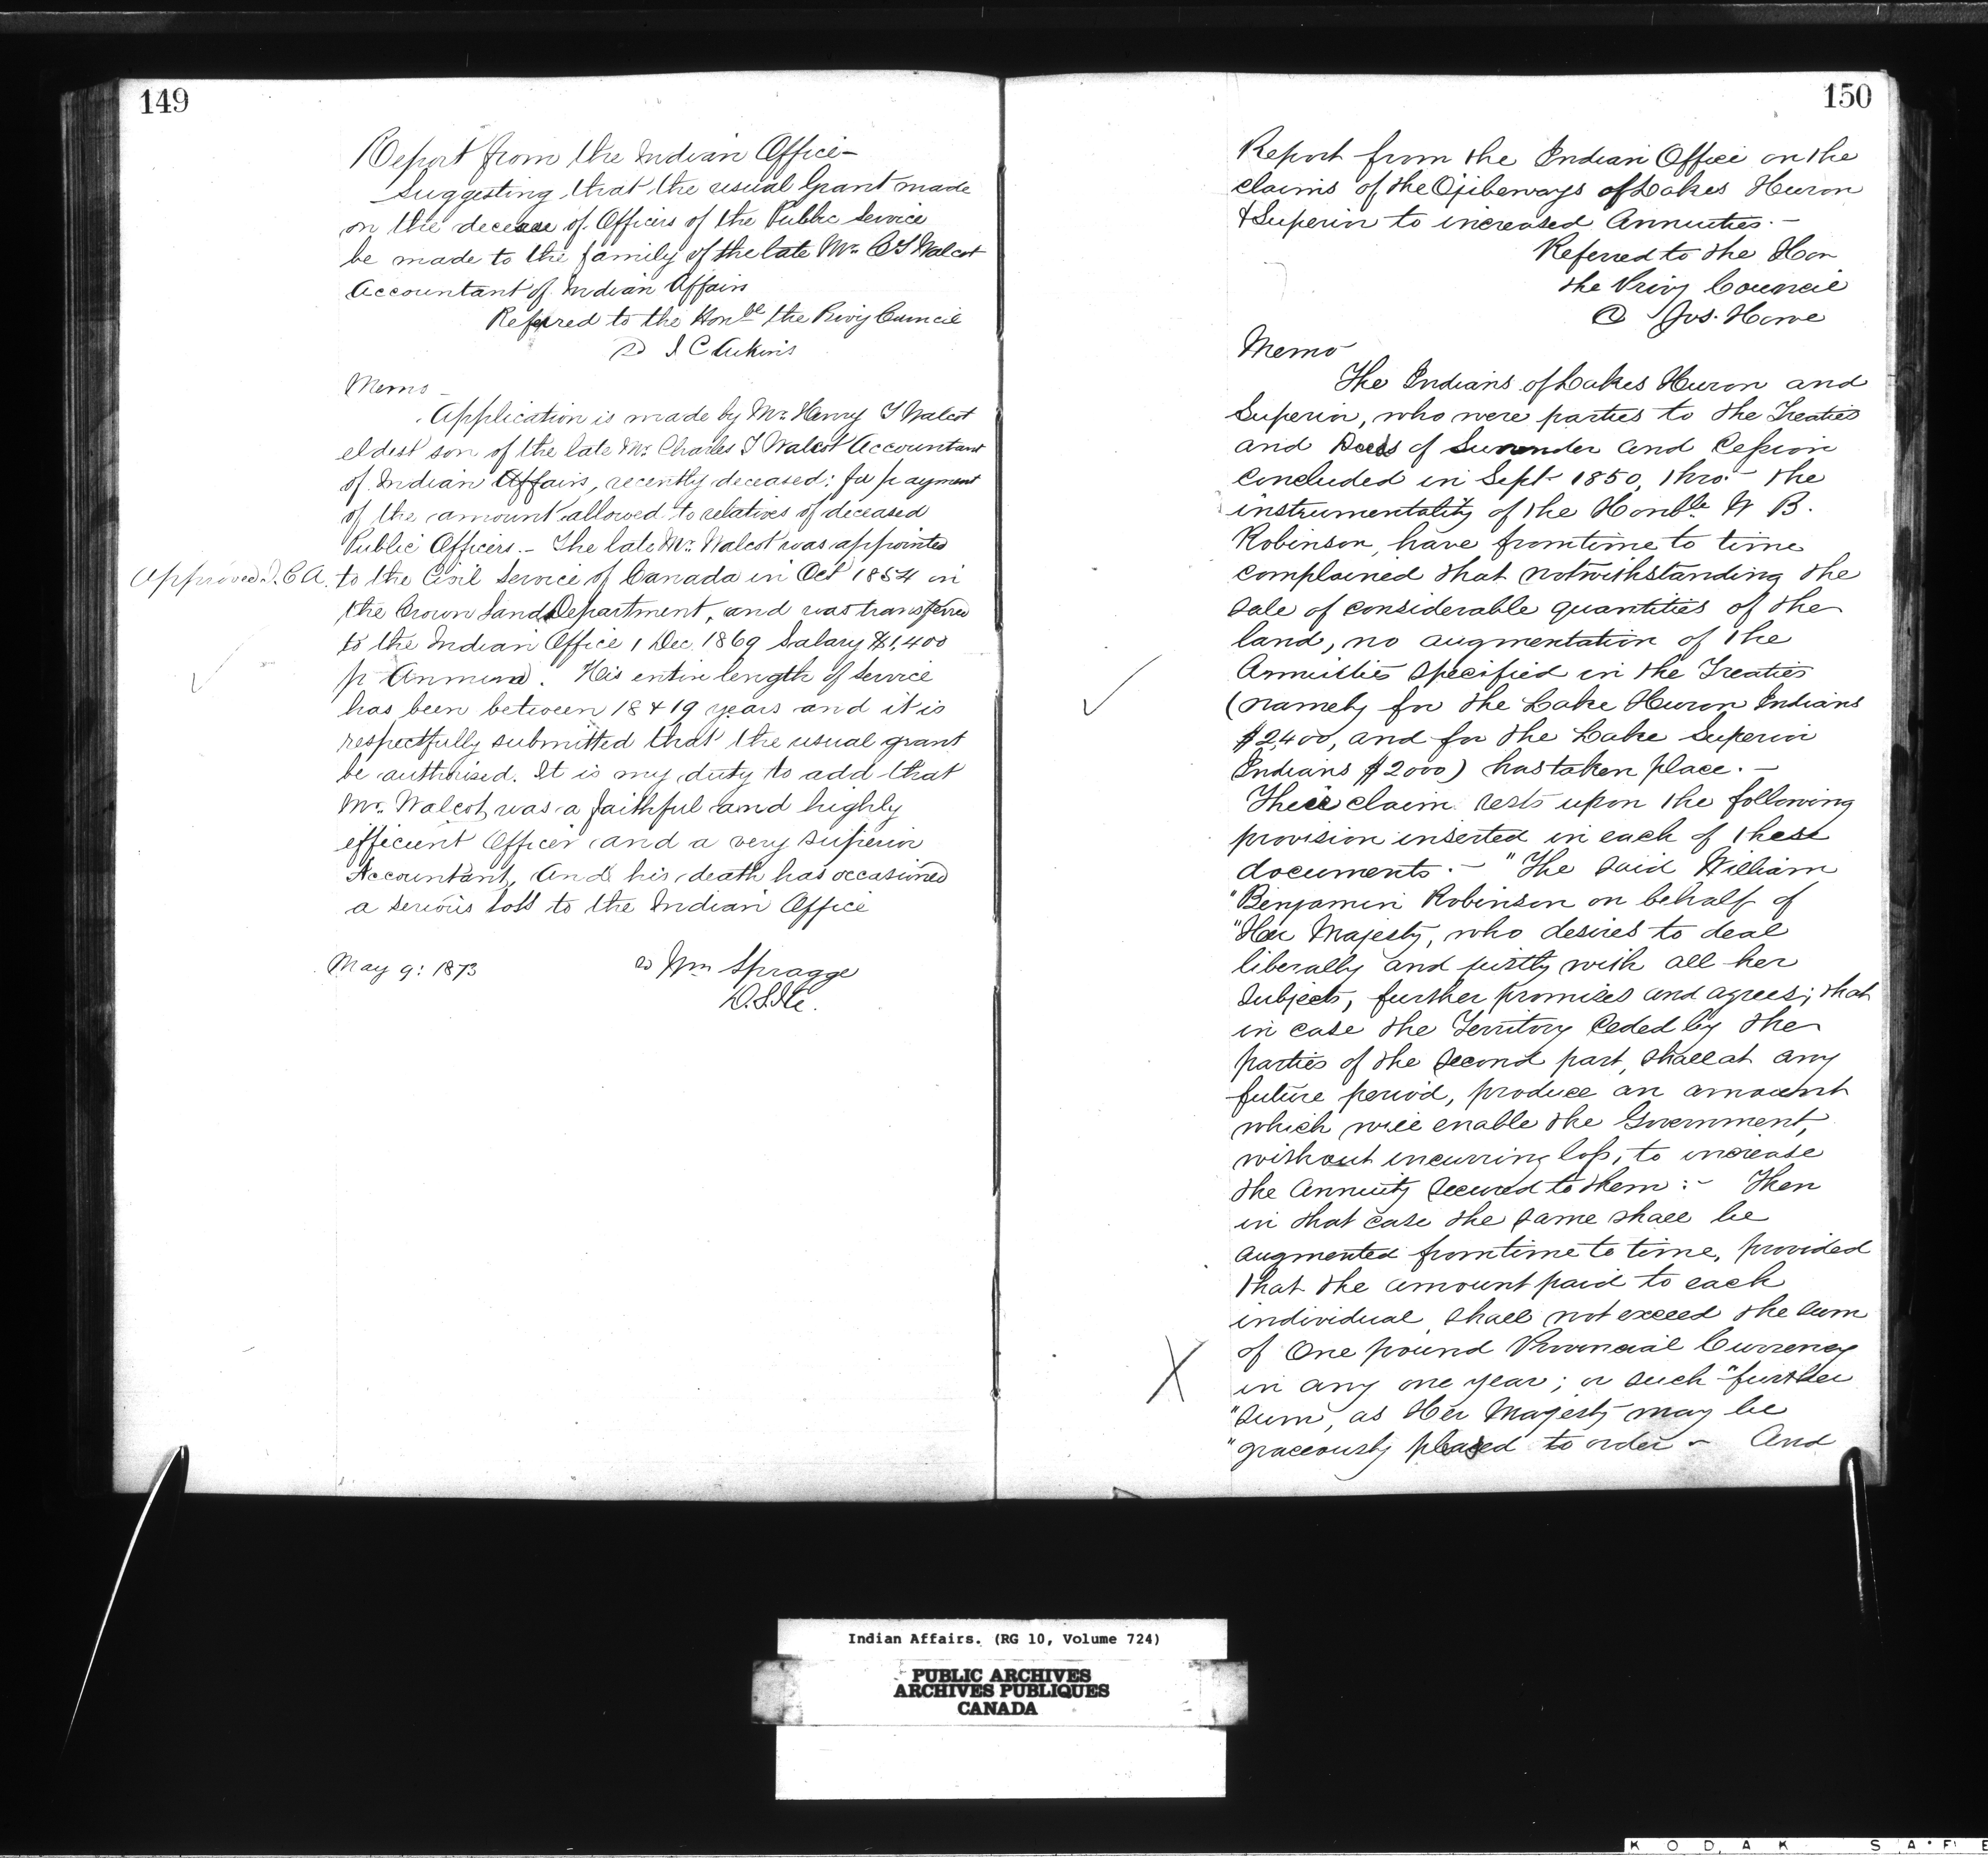 149
Report from the Indian Office –
Suggesting that the usual Grant made
on the decease of Officers of the Public Service
be made to the family of the late Mr. C T Walcot
Accountant of Indian Affairs
Referred to the Honble the Privy Council
sd J C Aikins
Memo –
Application is made by Mr. Henry T Walcot
eldest son of the late Mr. Charles T Walcot Accountant
of Indian Affairs, recently deceased: for payment
of the amount allowed to relatives of deceased
Public Officers. – The late Mr. Walcot was appointed
Approved J. C A.
to the Civil Service of Canada in Oct 1854 in
the Crown Lands Department, and was transferred
to the Indian Office 1 Dec. 1869 Salary $1,400
pr Annum. His entire length of service
has been between 18 & 19 years and it is
respectfully submitted that the usual grant
be authorised. It is my duty to add that
Mr. Walcot was a faithful and highly
efficient Officer and a very superior
Accountant, And his death has occasioned
a serious loss to the Indian Office
May 9: 1873
sd Wm Spragge
D.S.I.A.
150
Report from the Indian Office on the
claims of the Ojibeways of Lakes Huron
& Superior to increased Annuities. –
Referred to the Hon
the Privy Council
Jos. Howe
Memo
The Indians of Lakes Huron and
Superior, who were parties to the Treaties
and Deeds of Surrender and Cession
concluded in Sept 1850, thro' the
instrumentality of the Honble W B.
Robinson, have from time to time
complained that notwithstanding the
sale of considerable quantities of the
land, no augmentation of the
Annuities specified in the Treaties
(namely for the Lake Huron Indians
$2400, and for the Lake Superior
Indians $2000) has taken place. –
Their claim rests upon the following
provision inserted in each of these
documents. – "The said William
"Benjamin Robinson on behalf of
"Her Majesty, who desires to deal
liberally and justly with all her
subjects, further promises and agrees; that
in case the Territory Ceded by the
parties of the second part, shall at any
future period, produce an amount
which will enable the Government,
without incurring loss, to increase
the Annuity secured to them: – Then
in that case the same shall be
augmented from time to time, provided
that the amount paid to each
individual, shall not exceed the sum
of One pound Provincial Currency
in any one year; or such "further
"sum, as Her Majesty may be
"graciously pleased to order – And
Indian Affairs. (RG 10, Volume 724)
PUBLIC ARCHIVES
ARCHIVES PUBLIQUES
CANADA
KODAK SAFE